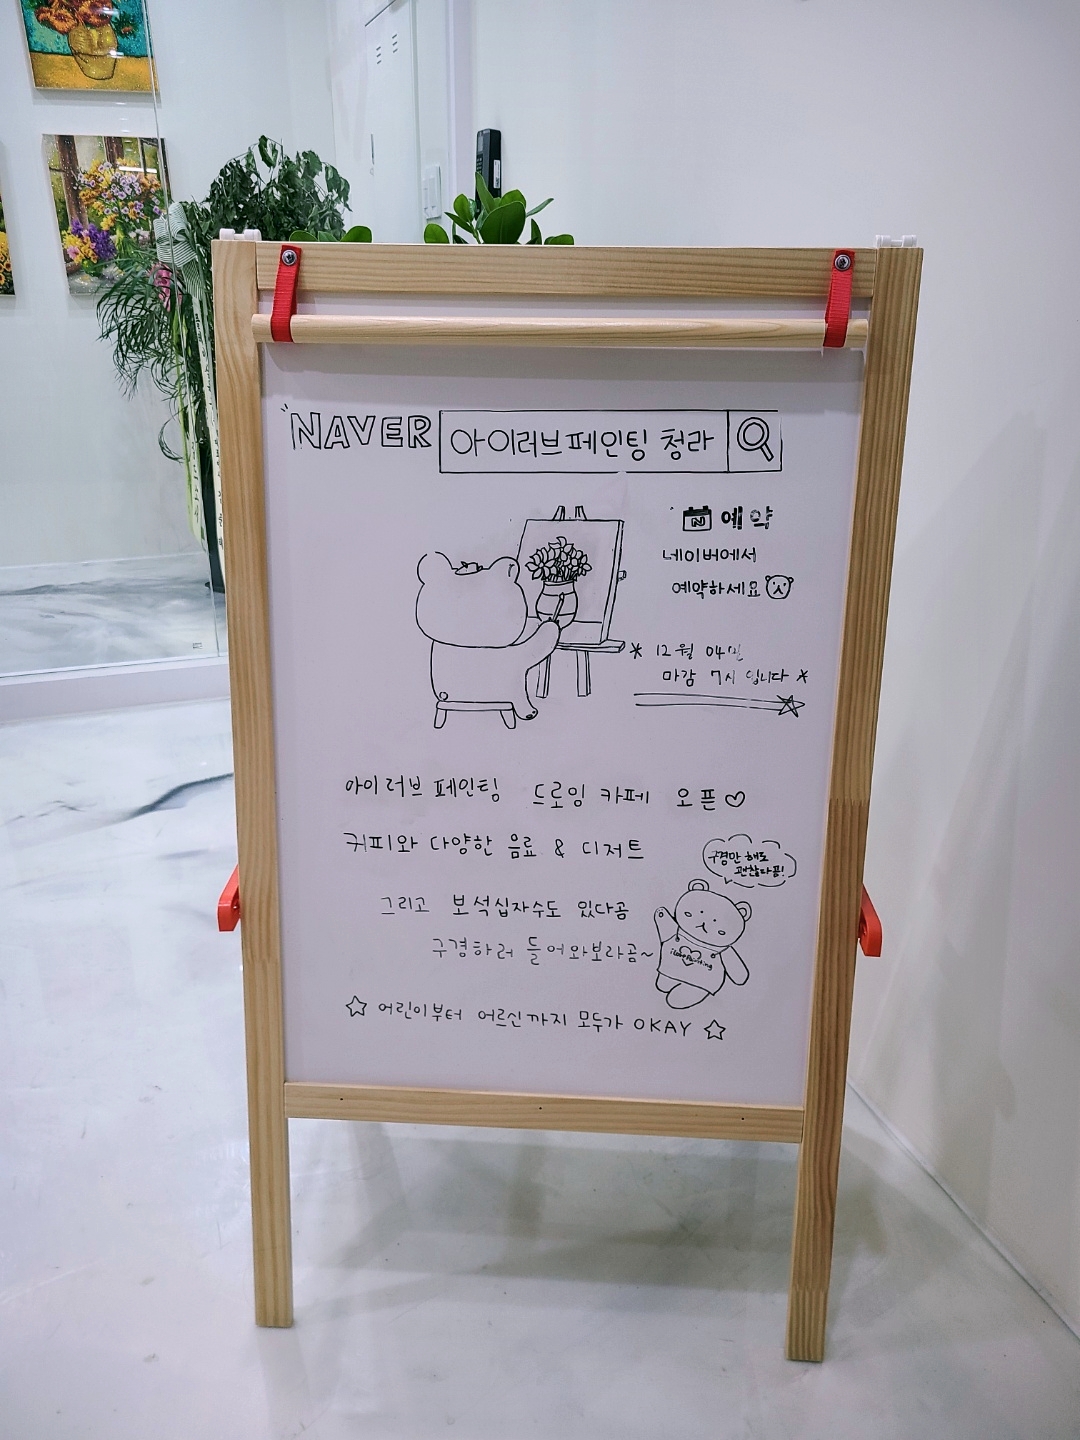 NAVER 아이러브페인팅 청라
N 예약
네이버에서
예약하세요
* 12월 04일
마감 7시 입니다 *
아이러브 페인팅 드로잉 카페 오픈♡
커피와 다양한 음료 & 디저트
구경만 해도
괜찮다곰!
그리고 보석십자수도 있다곰
구경하러 들어와보라곰~
i love Painting
☆ 어린이부터 어르신까지 모두가 OKAY ☆